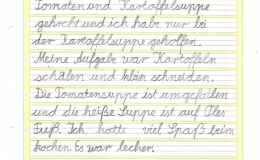 Tomaten und Kartoffelsuppe
gekocht und ich habe nur bei
der Kartoffelsuppe geholfen.
Meine Aufgabe war Kartoffeln
schälen und klein schneiden.
Die Tomatensuppe ist umgefallen
und die heiße Suppe ist auf
Fuß. Ich hatte viel Spaß beim
kochen Es war lecker.